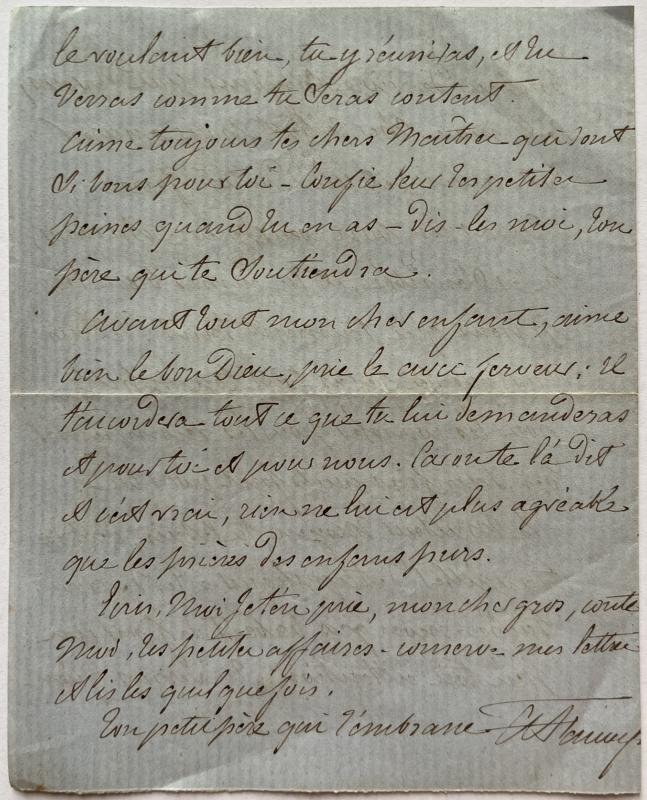 le voulant bien, tu y réuniras, et tu
verras comme tu seras content.
aime toujours tes chers Maîtres qui sont
si bons pour toi - Confie leur tes petites
peines quand tu en as - dis-les moi, ton
père qui te soutiendra.
avant tout mon cher enfant, aime
bien le bon Dieu, prie le avec ferveur; il
t'accordera tout ce que tu lui demanderas
et pour toi et pour nous. Car on te l'a dit
et c'est vrai, rien ne lui est plus agréable
que les prières des enfans purs.
Ecris, Moi je t'en prie, mon cher gros, conte
Moi, tes petites affaires - conserve mes lettres
et lis les quelquefois.
ton petit père qui t'embrasse